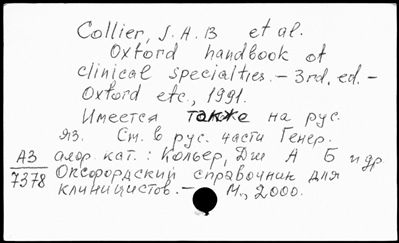 Collier, J. A. B et al.
Oxford handbook of
clinical specialties. – 3rd. ed. –
Oxford etc., 1991.
Имеется также на рус.
яз. См. в рус. части Генер.
АЗ алф. кат.: Кольер, Дж А Б и др
7378 Оксфордский справочник для
клиницистов. – М., 2000.